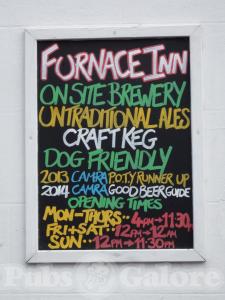 FURNACE INN
ON SITE BREWERY
UNTRADITIONAL ALES
CRAFT KEG
DOG FRIENDLY
2013 CAMRA P.O.T.Y RUNNER UP
2014 CAMRA GOOD BEER GUIDE
OPENING TIMES
MON-THURS: 4PM → 11:30PM
FRI+SAT: 12PM → 12AM
SUN: 12PM → 11:30PM